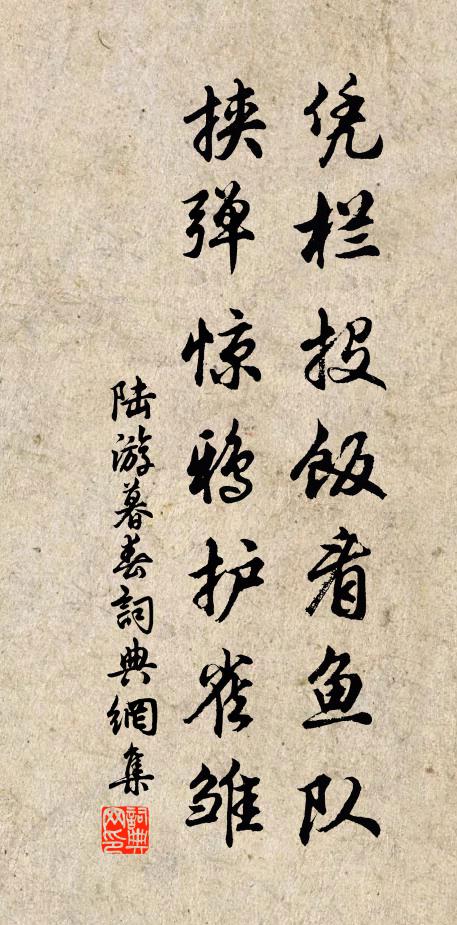 凭栏投饭看鱼队
挟弹惊鸦护雀雏
陆游暮春詞典網集
詞典网印